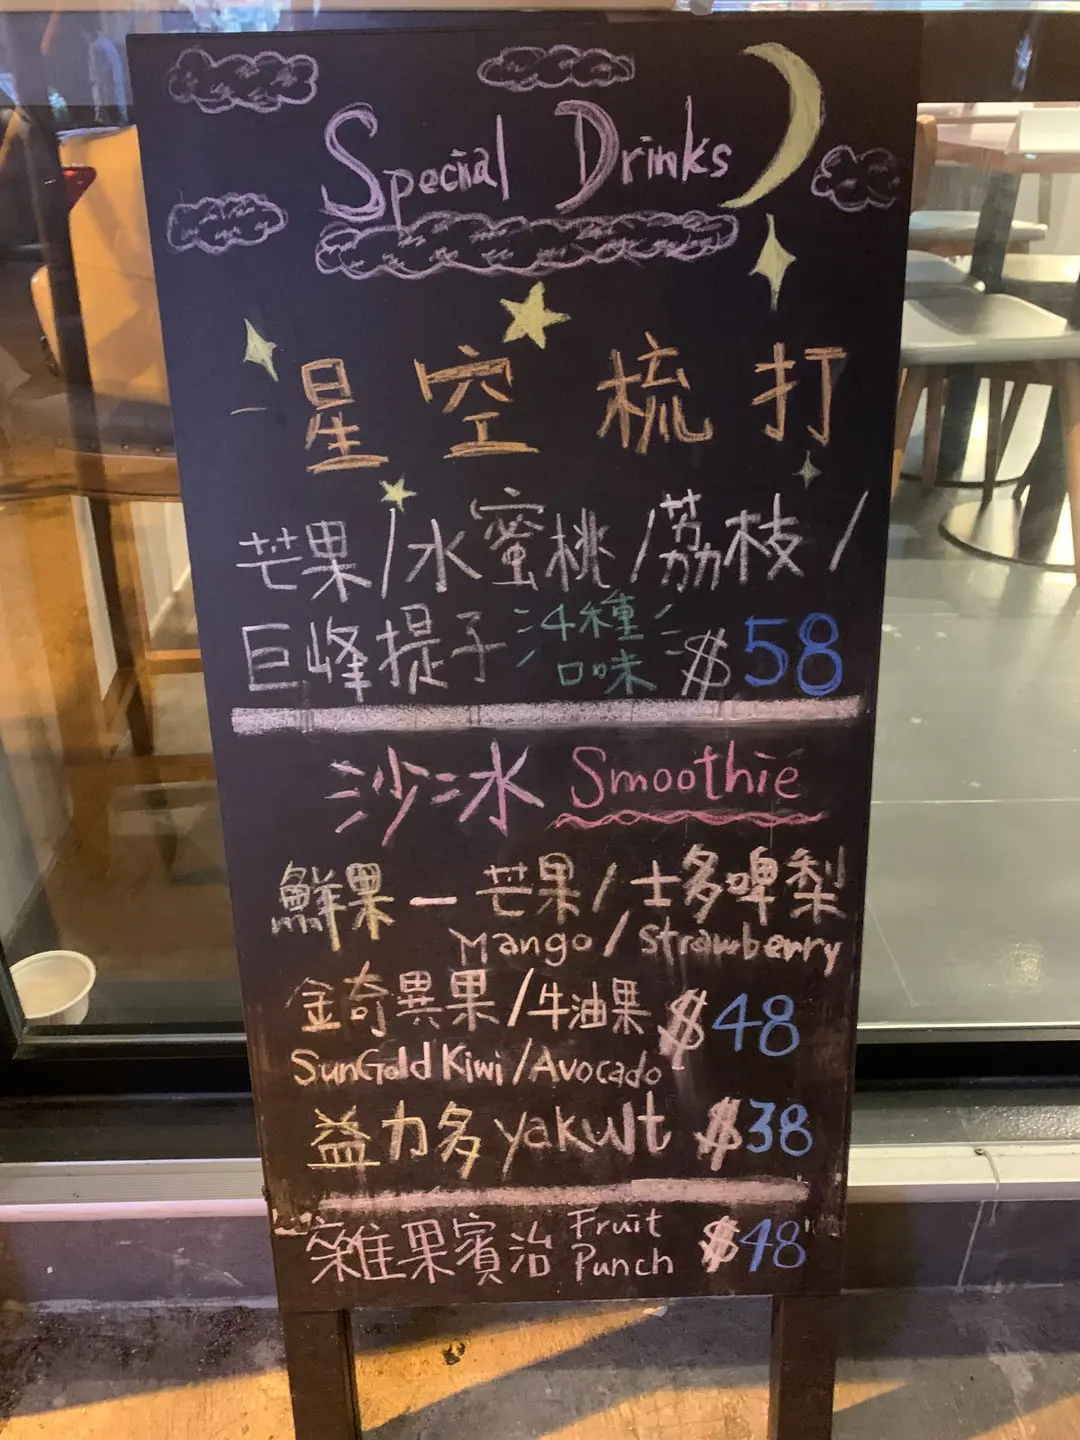 Special Drinks
星空梳打
芒果/水蜜桃/荔枝/
巨峰提子 4種口味 $58
沙冰 Smoothie
鮮果 — 芒果/士多啤梨
Mango/Strawberry
金奇異果/牛油果 $48
SunGold Kiwi/Avocado
益力多 yakult $38
雜果賓治 Fruit Punch $48